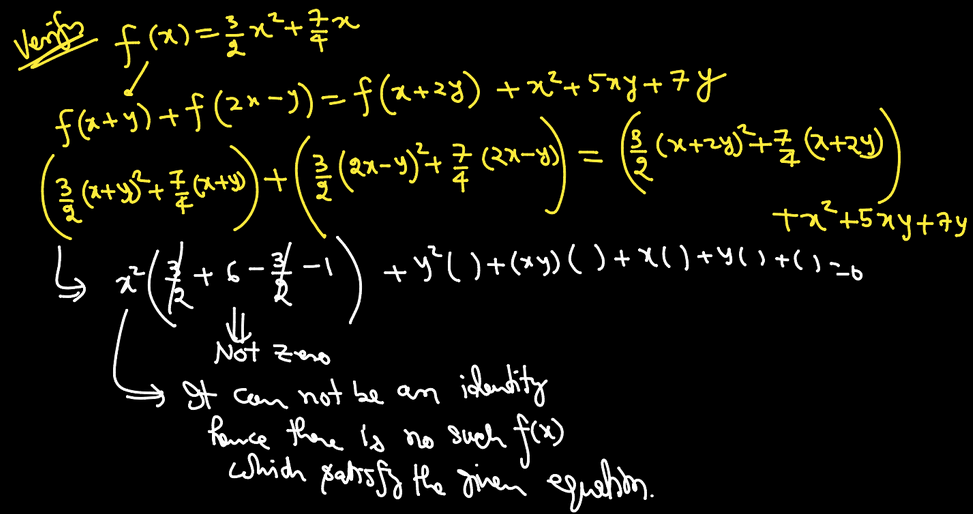 Verify f(x) = 3/2 x² + 7/4 x
f(x+y) + f(2x-y) = f(x+2y) + x² + 5xy + 7y
(3/2 (x+y)² + 7/4 (x+y)) + (3/2 (2x-y)² + 7/4 (2x-y)) = (3/2 (x+2y)² + 7/4 (x+2y))
+ x² + 5xy + 7y
↳ x² (3/2 + 6 - 3/2 - 1) + y² ( ) + (xy) ( ) + x ( ) + y ( ) + ( ) = 0
⇓
Not Zero
→ It can not be an identity
hence there is no such f(x)
which satisfy the given equation.